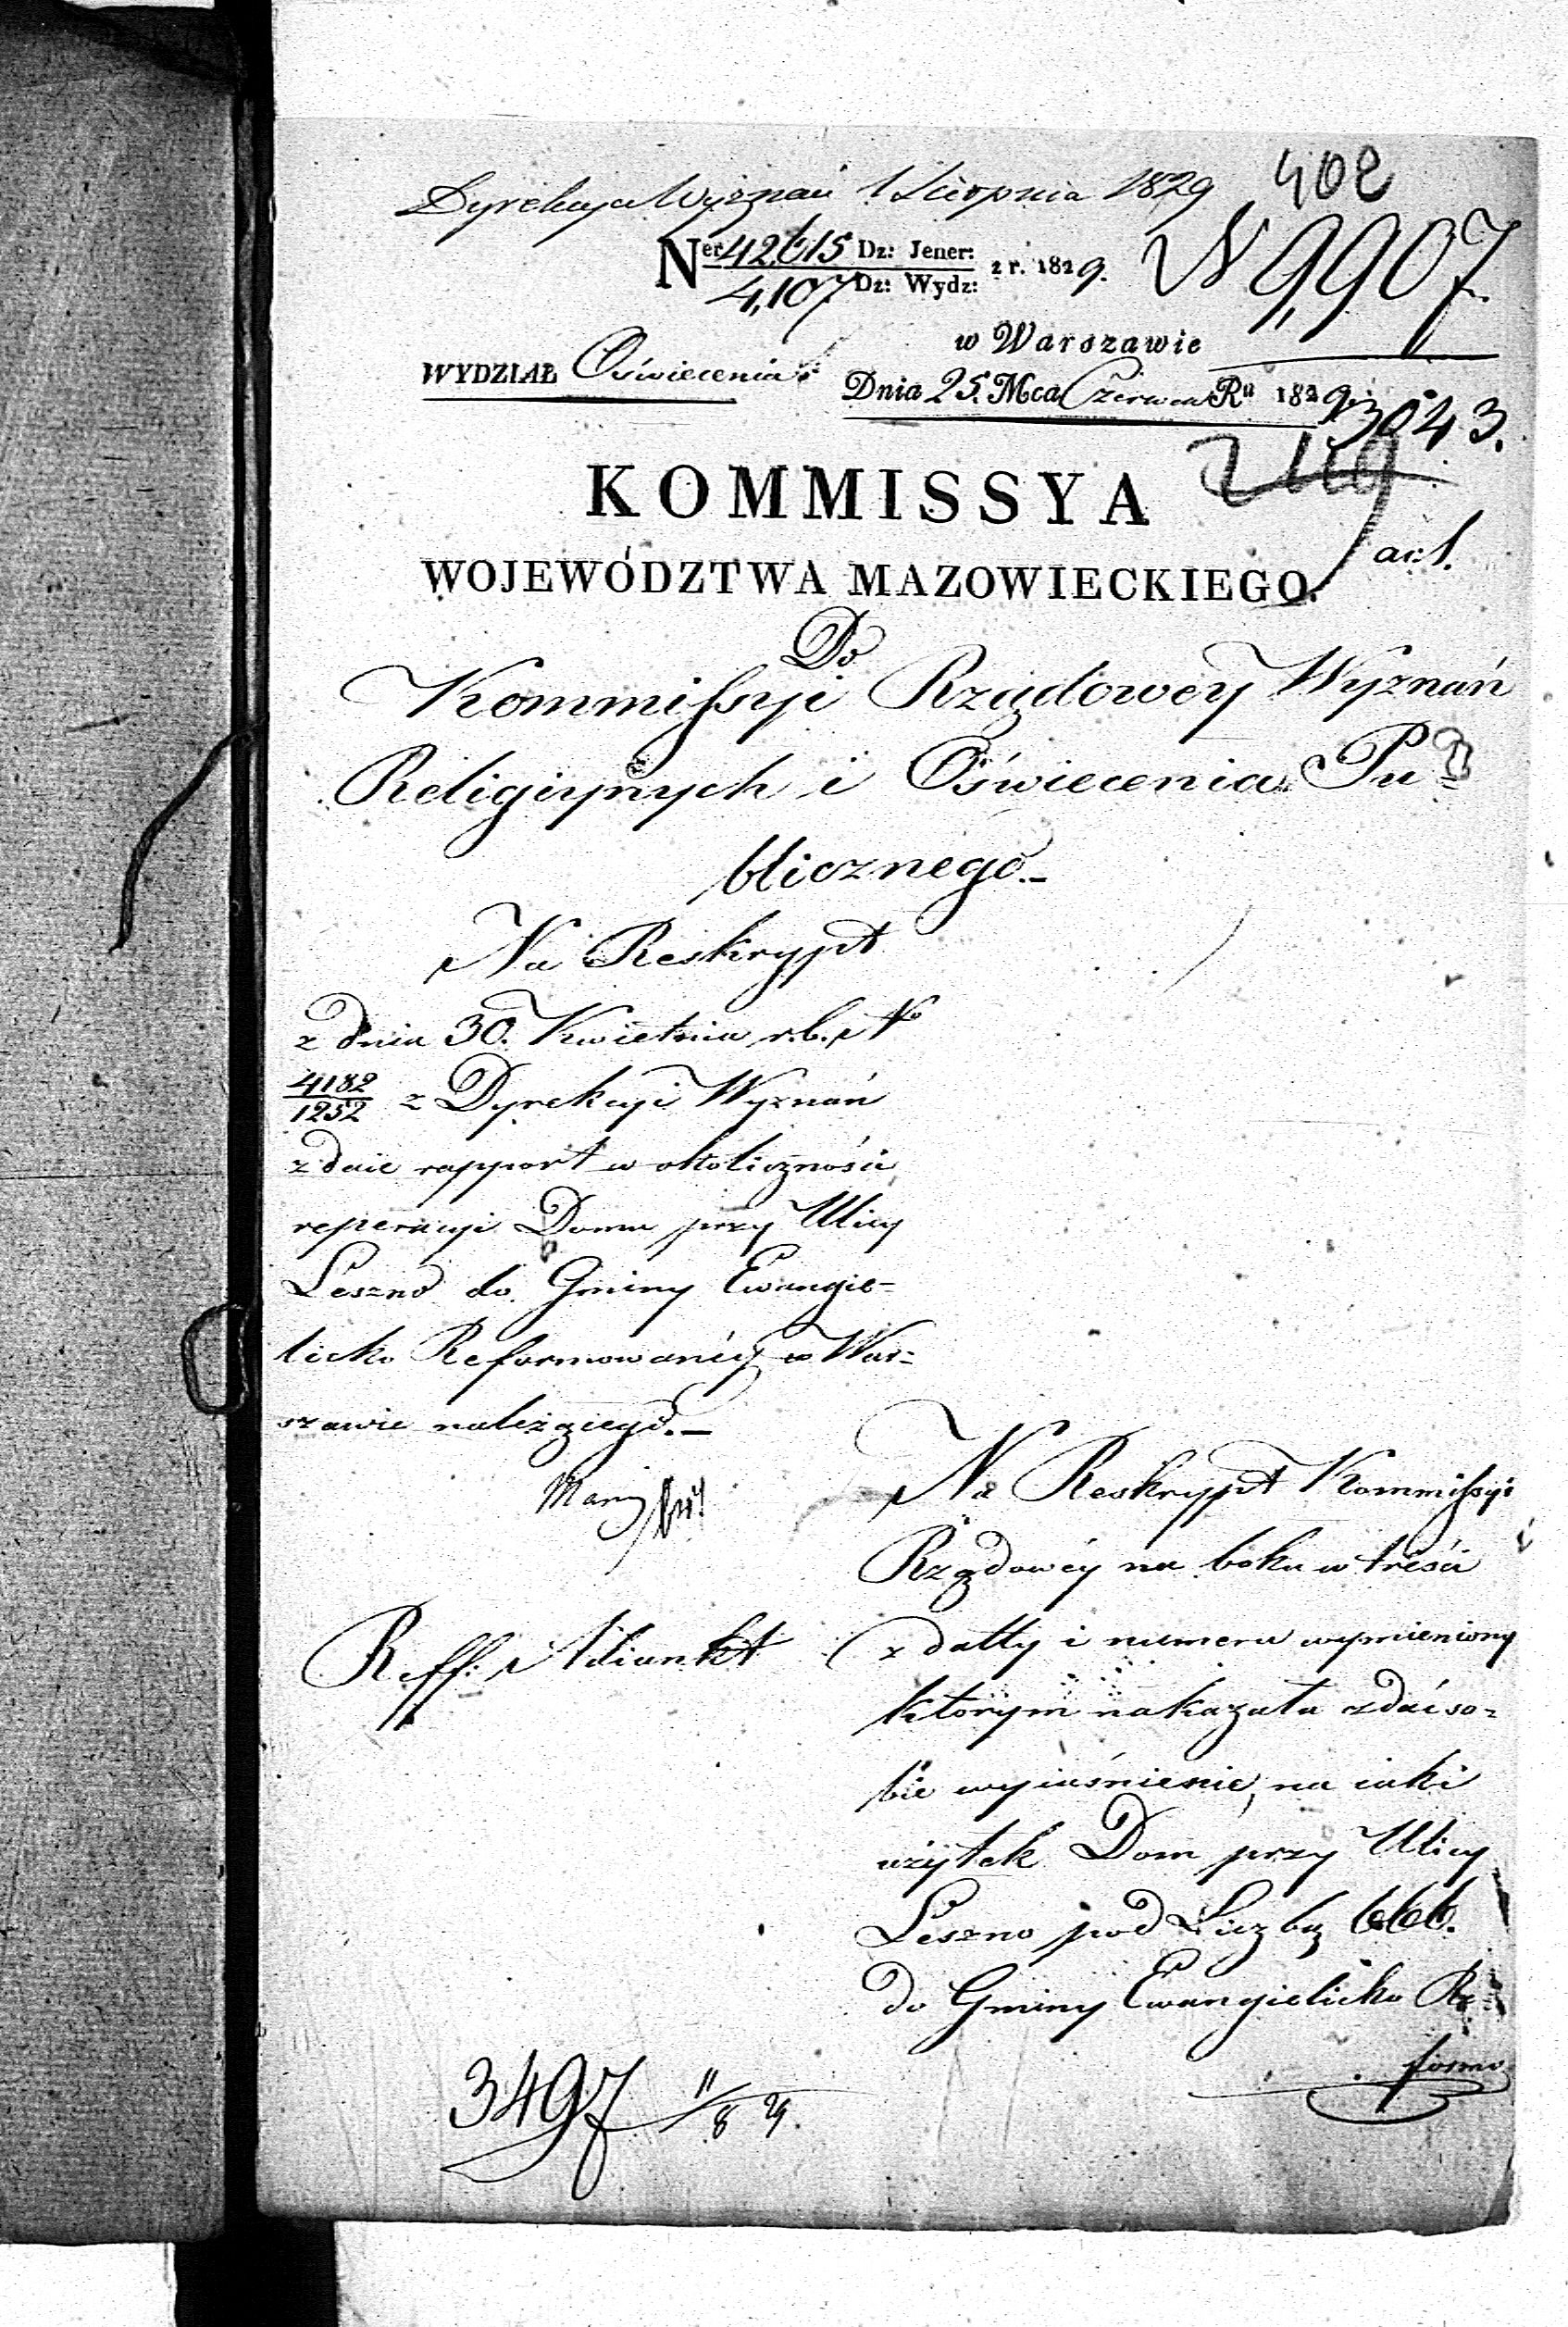 Dyrekcya Wyznań 1 Sierpnia 1829
402
Ner 42615 Dz: Jener: z r. 1829.
4,107 Dz: Wydz:
N 9,907
w Warszawie
WYDZIAŁ Oświecenia
Dnia 25. Mca Czerwca Ru 1829.
13043.
KOMMISSYA
WOJEWÓDZTWA MAZOWIECKIEGO.
Do
Kommissyi Rządowey Wyznań
Religiynych i Oświecenia Pu-
blicznego.
Na Reskrypt
z dnia 30. Kwietnia r.b. No
4182/1252 z Dyrekcyi Wyznań
zdaie rapport w okoliczności
reperacyi Domu przy Ulicy
Leszno do Gminy Ewangie=
licko Reformowanéy w War=
szawie należącego.
Na Reskrypt Kommissyi
Rządowéy na boku w treści
z datty i numeru wymieniony
którym nakazała zdać so=
bie wyiaśnienie, na iaki
użytek Dom przy Ulicy
Leszno pod Liczbą 666.
do Gminy Ewangielicko Re=
formo
Reff: Adiunkt
3497 11/8 29.